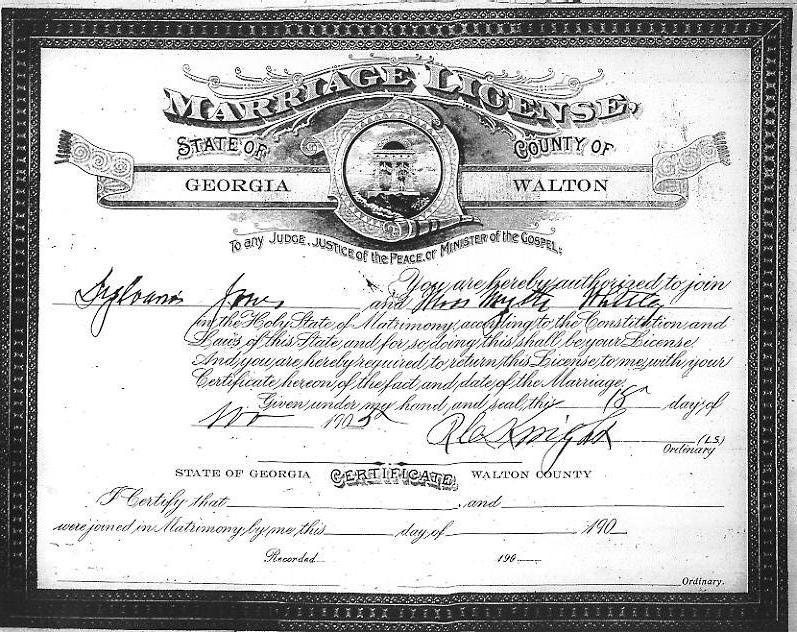 MARRIAGE LICENSE.
STATE OF COUNTY OF
GEORGIA WALTON
To any JUDGE, JUSTICE of the PEACE, or MINISTER of the GOSPEL:
You are hereby authorized to join
Jones and Miss
in the Holy State of Matrimony, according to the Constitution and
Laws of this State and for so doing this shall be your License
And you are hereby required to return this License to me, with your
Certificate hereon, of the fact and date of the Marriage.
Given under my hand and seal, this 18 day of
Nov 1905
R C Knight (L.S.)
Ordinary
STATE OF GEORGIA CERTIFICATE. WALTON COUNTY
I Certify that and
were joined in Matrimony by me, this day of 190
Recorded 190
Ordinary.